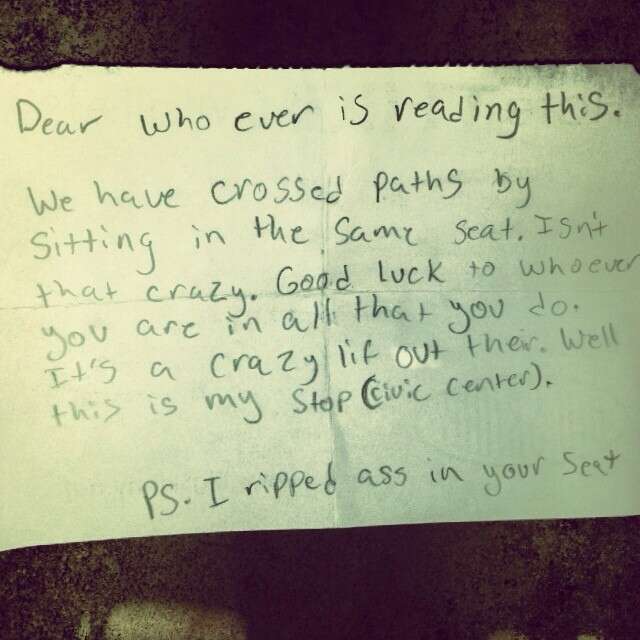 Dear who ever is reading this.
We have crossed paths by
sitting in the same seat. Isn't
that crazy. Good luck to whoever
you are in all that you do.
It's a crazy lif out their. Well
this is my stop (civic center).
PS. I ripped ass in your seat